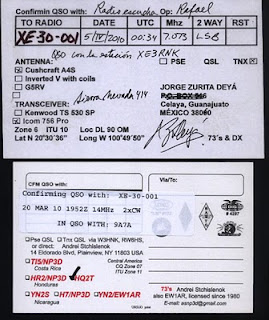 Confirmin QSO with: Radio escucha Op: Rafael
TO RADIO DATE UTC Mhz 2 WAY RST
XE-30-001 5/IV/2010 00:34 7.073 LSB
QSO con la estación XE3RNK
ANTENNA: PSE QSL TNX
Cushcraft A4S
Inverted V with coils
G5RV
JORGE ZURITA DEYÁ
Sierra Nevada 414
P.O. BOX
TRANSCEIVER: Celaya, Guanajuato
Kenwood TS 530 SP MÉXICO
Icom 756 Pro
Zone 6 ITU 10 Loc DL 90 OM
Lat N 20°30'36" Long W 100°49'50" 73's & DX
CFM QSO with: XE-30-001 Via/To:
Confirming QSO with:
20 MAR 10 1952Z 14MHz 2xCW
IN QSO WITH: 9A7A
# 4287
Pse QSL Tnx QSL via W3HNK, RW6HS,
or direct: Andrei Stchislenok
14 Eldorado Blvd, Plainview, NY 11803
TI5/NP3D
Costa Rica
Central America
CQ Zone 07
ITU Zone 11
HR2/NP3D HQ2T
Honduras
YN2S H7/NP3D YN2/EW1AR
Nicaragua
73's Andrei Stchislenok
also EW1AR, licensed since 1980
E-mail: asnp3d@